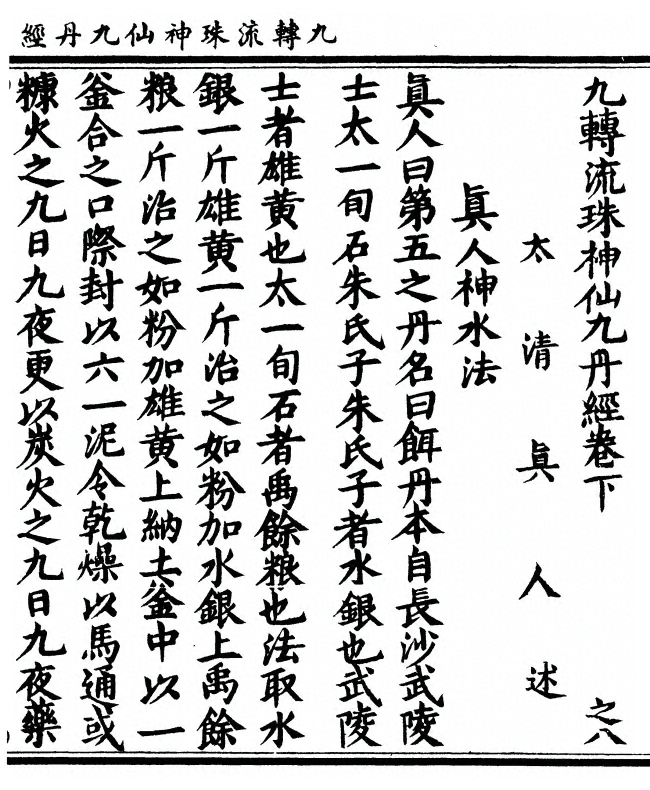 九轉流珠神仙九丹經
九轉流珠神仙九丹經卷下 之八
太清眞人述
眞人神水法
眞人曰第五之丹名曰餌丹本自長沙武陵
士太一旬石朱氏子朱氏子者水銀也武陵
士者雄黄也太一旬石者禹餘粮也法取水
銀一斤雄黄一斤治之如粉加水銀上禹餘
粮一斤治之如粉加雄黄上納土釜中以一
釜合之口際封以六一泥令乾燥以馬通或
糠火之九日九夜更以炭火之九日九夜藥